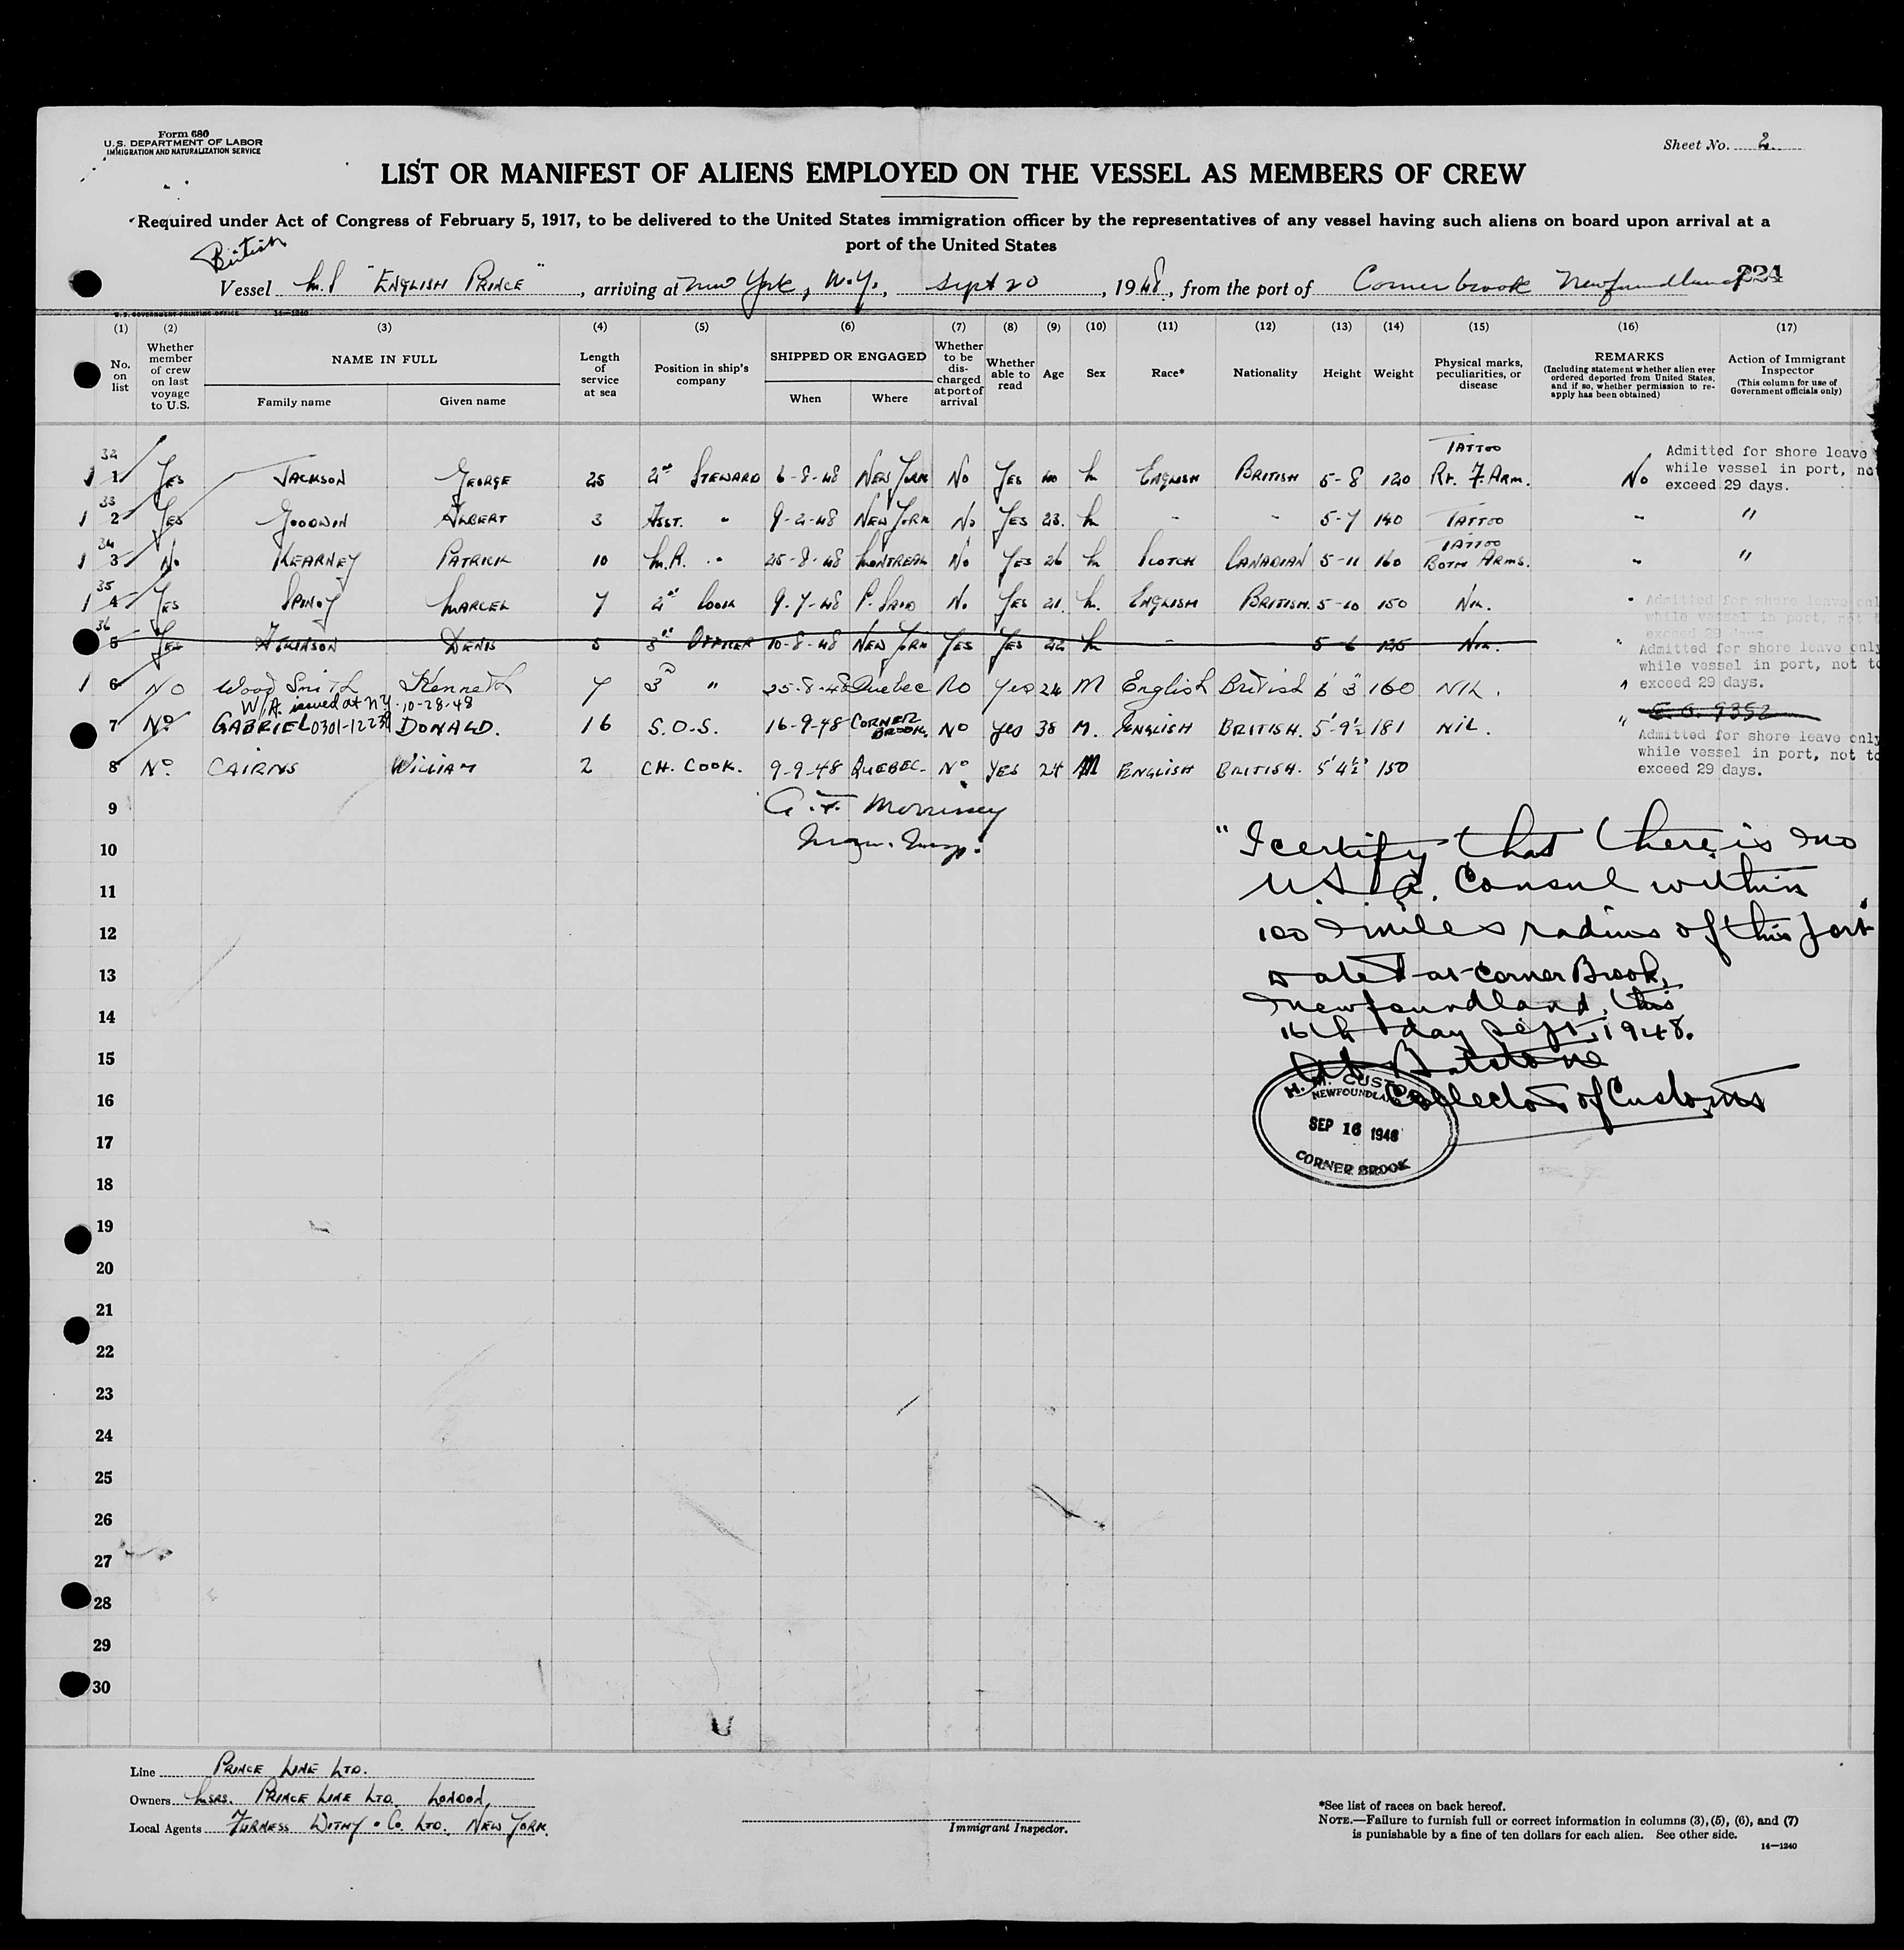 Form 680
U.S. DEPARTMENT OF LABOR
IMMIGRATION AND NATURALIZATION SERVICE
Sheet No. 2
LIST OR MANIFEST OF ALIENS EMPLOYED ON THE VESSEL AS MEMBERS OF CREW
Required under Act of Congress of February 5, 1917, to be delivered to the United States immigration officer by the representatives of any vessel having such aliens on board upon arrival at a
port of the United States
British
Vessel M.S "ENGLISH PRINCE", arriving at New York, N.Y., Sept 20, 1948, from the port of Cornerbrook Newfoundland 224
U.S. GOVERNMENT PRINTING OFFICE 14—1240
(1) (2) (3) (4) (5) (6) (7) (8) (9) (10) (11) (12) (13) (14) (15) (16) (17)
No. on list
Whether member of crew on last voyage to U.S.
NAME IN FULL
Family name
Given name
Length of service at sea
Position in ship's company
SHIPPED OR ENGAGED
When
Where
Whether to be discharged at port of arrival
Whether able to read
Age
Sex
Race*
Nationality
Height
Weight
Physical marks, peculiarities, or disease
REMARKS
(Including statement whether alien ever ordered deported from United States, and if so, whether permission to reapply has been obtained)
Action of Immigrant Inspector
(This column for use of Government officials only)
32
1 1 YES JACKSON GEORGE 25 2nd STEWARD 6-8-48 NEW YORK NO YES 40 M ENGLISH BRITISH 5-8 120 TATTOO RT. F. ARM. No Admitted for shore leave while vessel in port, not exceed 29 days.
33
1 2 YES GOODWIN ALBERT 3 ASST. " 9-2-48 NEW YORK NO YES 23. M - - 5-7 140 TATTOO " "
34
1 3 NO KEARNEY PATRICK 10 M.R. " 25-8-48 MONTREAL NO YES 26 M SCOTCH CANADIAN 5-11 160 TATTOO BOTH ARMS. " "
35
1 4 YES SPINOY MARCEL 7 2nd COOK 9-7-48 P. SAID NO YES 21. M. ENGLISH BRITISH. 5-10 150 NIL. " Admitted for shore leave only while vessel in port, not to exceed 29 days
36
5 YES ATKINSON DENIS 5 3rd OFFICER 10-8-48 NEW YORK YES YES 22 M - - 5-6 125 NIL. "
1 6 NO Wood Smith Kenneth 7 3rd " 25-8-48 Quebec NO Yes 24 M English British 6' 3" 160 NIL. " Admitted for shore leave only while vessel in port, not to exceed 29 days.
W/A. issued at N.Y. 10-28-48
7 NO GABRIEL 0301-12239 DONALD. 16 S.O.S. 16-9-48 CORNER BROOK. NO YES 38 M. ENGLISH BRITISH. 5'-9½ 181 NIL. " E.O. 9352
8 NO. CAIRNS WILLIAM 2 CH. COOK. 9-9-48 QUEBEC. NO YES 24 M ENGLISH BRITISH. 5'4½" 150 Admitted for shore leave only while vessel in port, not to exceed 29 days.
9
A. F. Morrissey
10
Imm. Insp.
"I certify that there is no
11
U.S.A. Consul within
12
100 miles radius of this port
13
Dated at Corner Brook,
14
Newfoundland, this
16th day Sept, 1948.
15
Batstone
16
Collector of Customs
H. M. CUSTOMS
NEWFOUNDLAND
SEP 16 1948
CORNER BROOK
17
18
19
20
21
22
23
24
25
26
27
28
29
30
Line PRINCE LINE LTD.
Owners MSRS. PRINCE LINE LTD. LONDON,
Local Agents FURNESS WITHY & CO. LTD., NEW YORK.
Immigrant Inspector.
*See list of races on back hereof.
NOTE.—Failure to furnish full or correct information in columns (3), (5), (6), and (7)
is punishable by a fine of ten dollars for each alien. See other side.
14—1240